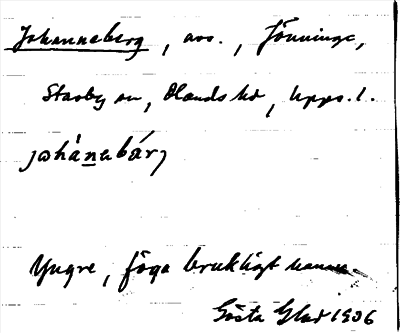 Johanneberg, avs., Jönninge,
Stavby sn, Olands hd, Upps. l.
johánebárj
Yngre, föga brukligt namn.
Gösta Glad 1906